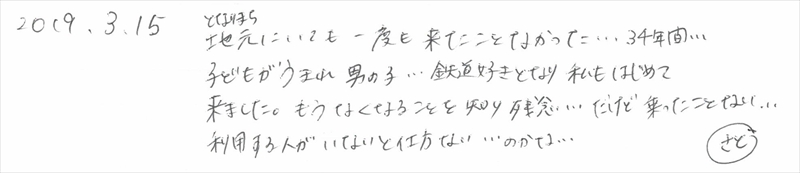 2019.3.15
となりまち
地元にいても 一度も 来たことなかった…34年間…
子どもがうまれ 男の子…鉄道好きとなり 私もはじめて
来ました。もう なくなることを 知り 残念…だけど 乗ったことない…
利用する人が いないと仕方ない…のかな…
さとう